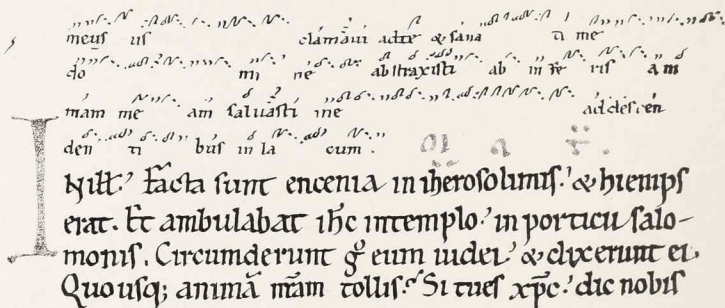 meus us clamaui ad te & sana ti me
do mi ne abstraxisti ab in fe ris am
mam me am saluasti me ad descen
den ti bus in la cum.
IN ill. Facta sunt encenia in iherosolimis. & hiemps
erat. Et ambulabat ihc in templo. in porticu salo-
monis. Circumderunt g eum iudei. & dixerunt ei.
Quo usq; animā mām tollis. Si tu es xpc. dic nobis